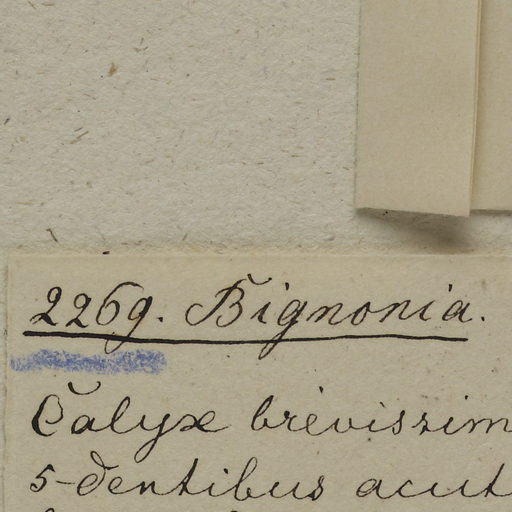 2269. Bignonia.
Calyx brevissim
5-dentibus acut